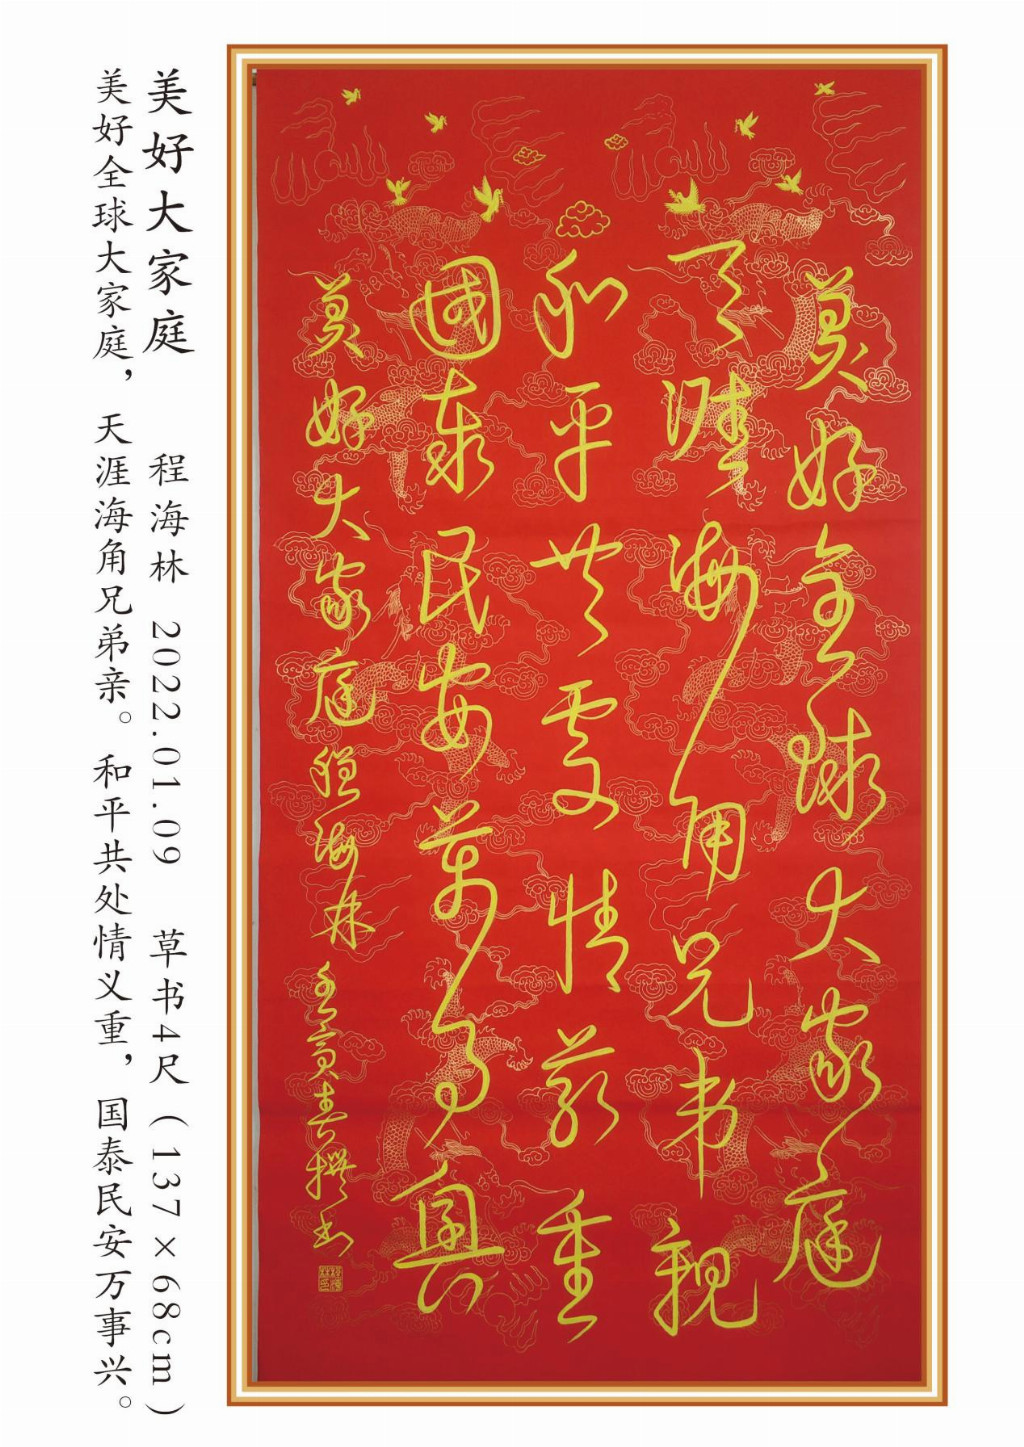 美好全球大家庭
天涯海角兄弟亲
和平共处情义重
國泰民安萬事興
美好大家庭 程海林 壬寅春撰书
美好大家庭 程海林 2022.01.09 草书4尺(137×68cm)
美好全球大家庭,天涯海角兄弟亲。和平共处情义重,国泰民安万事兴。